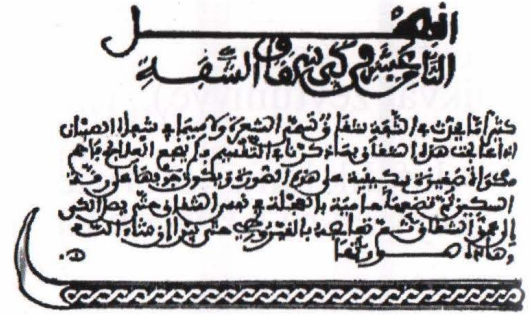 الفصل
الثامن عشر في كي شقاق الشفة
كثيرا ما يحدث في الشفة شقاق تسمى الشعرة ولا سيما في شفاه الصبيان
اذا عالجت هذا الشقاق بما ذكرنا في التقسيم ولم ينجع العلاج فاحم
مكواة صغيرة سكينية على هذه الصورة ويكون جوفها على رقة
السكين ثم تضعها حامية بالعجلة في نفس الشقاق حتى يصل الكي
الى عمق الشقاق ثم تعالجه بالقيروطي حتى يبرا ان شاء الله
وهذه صورتها